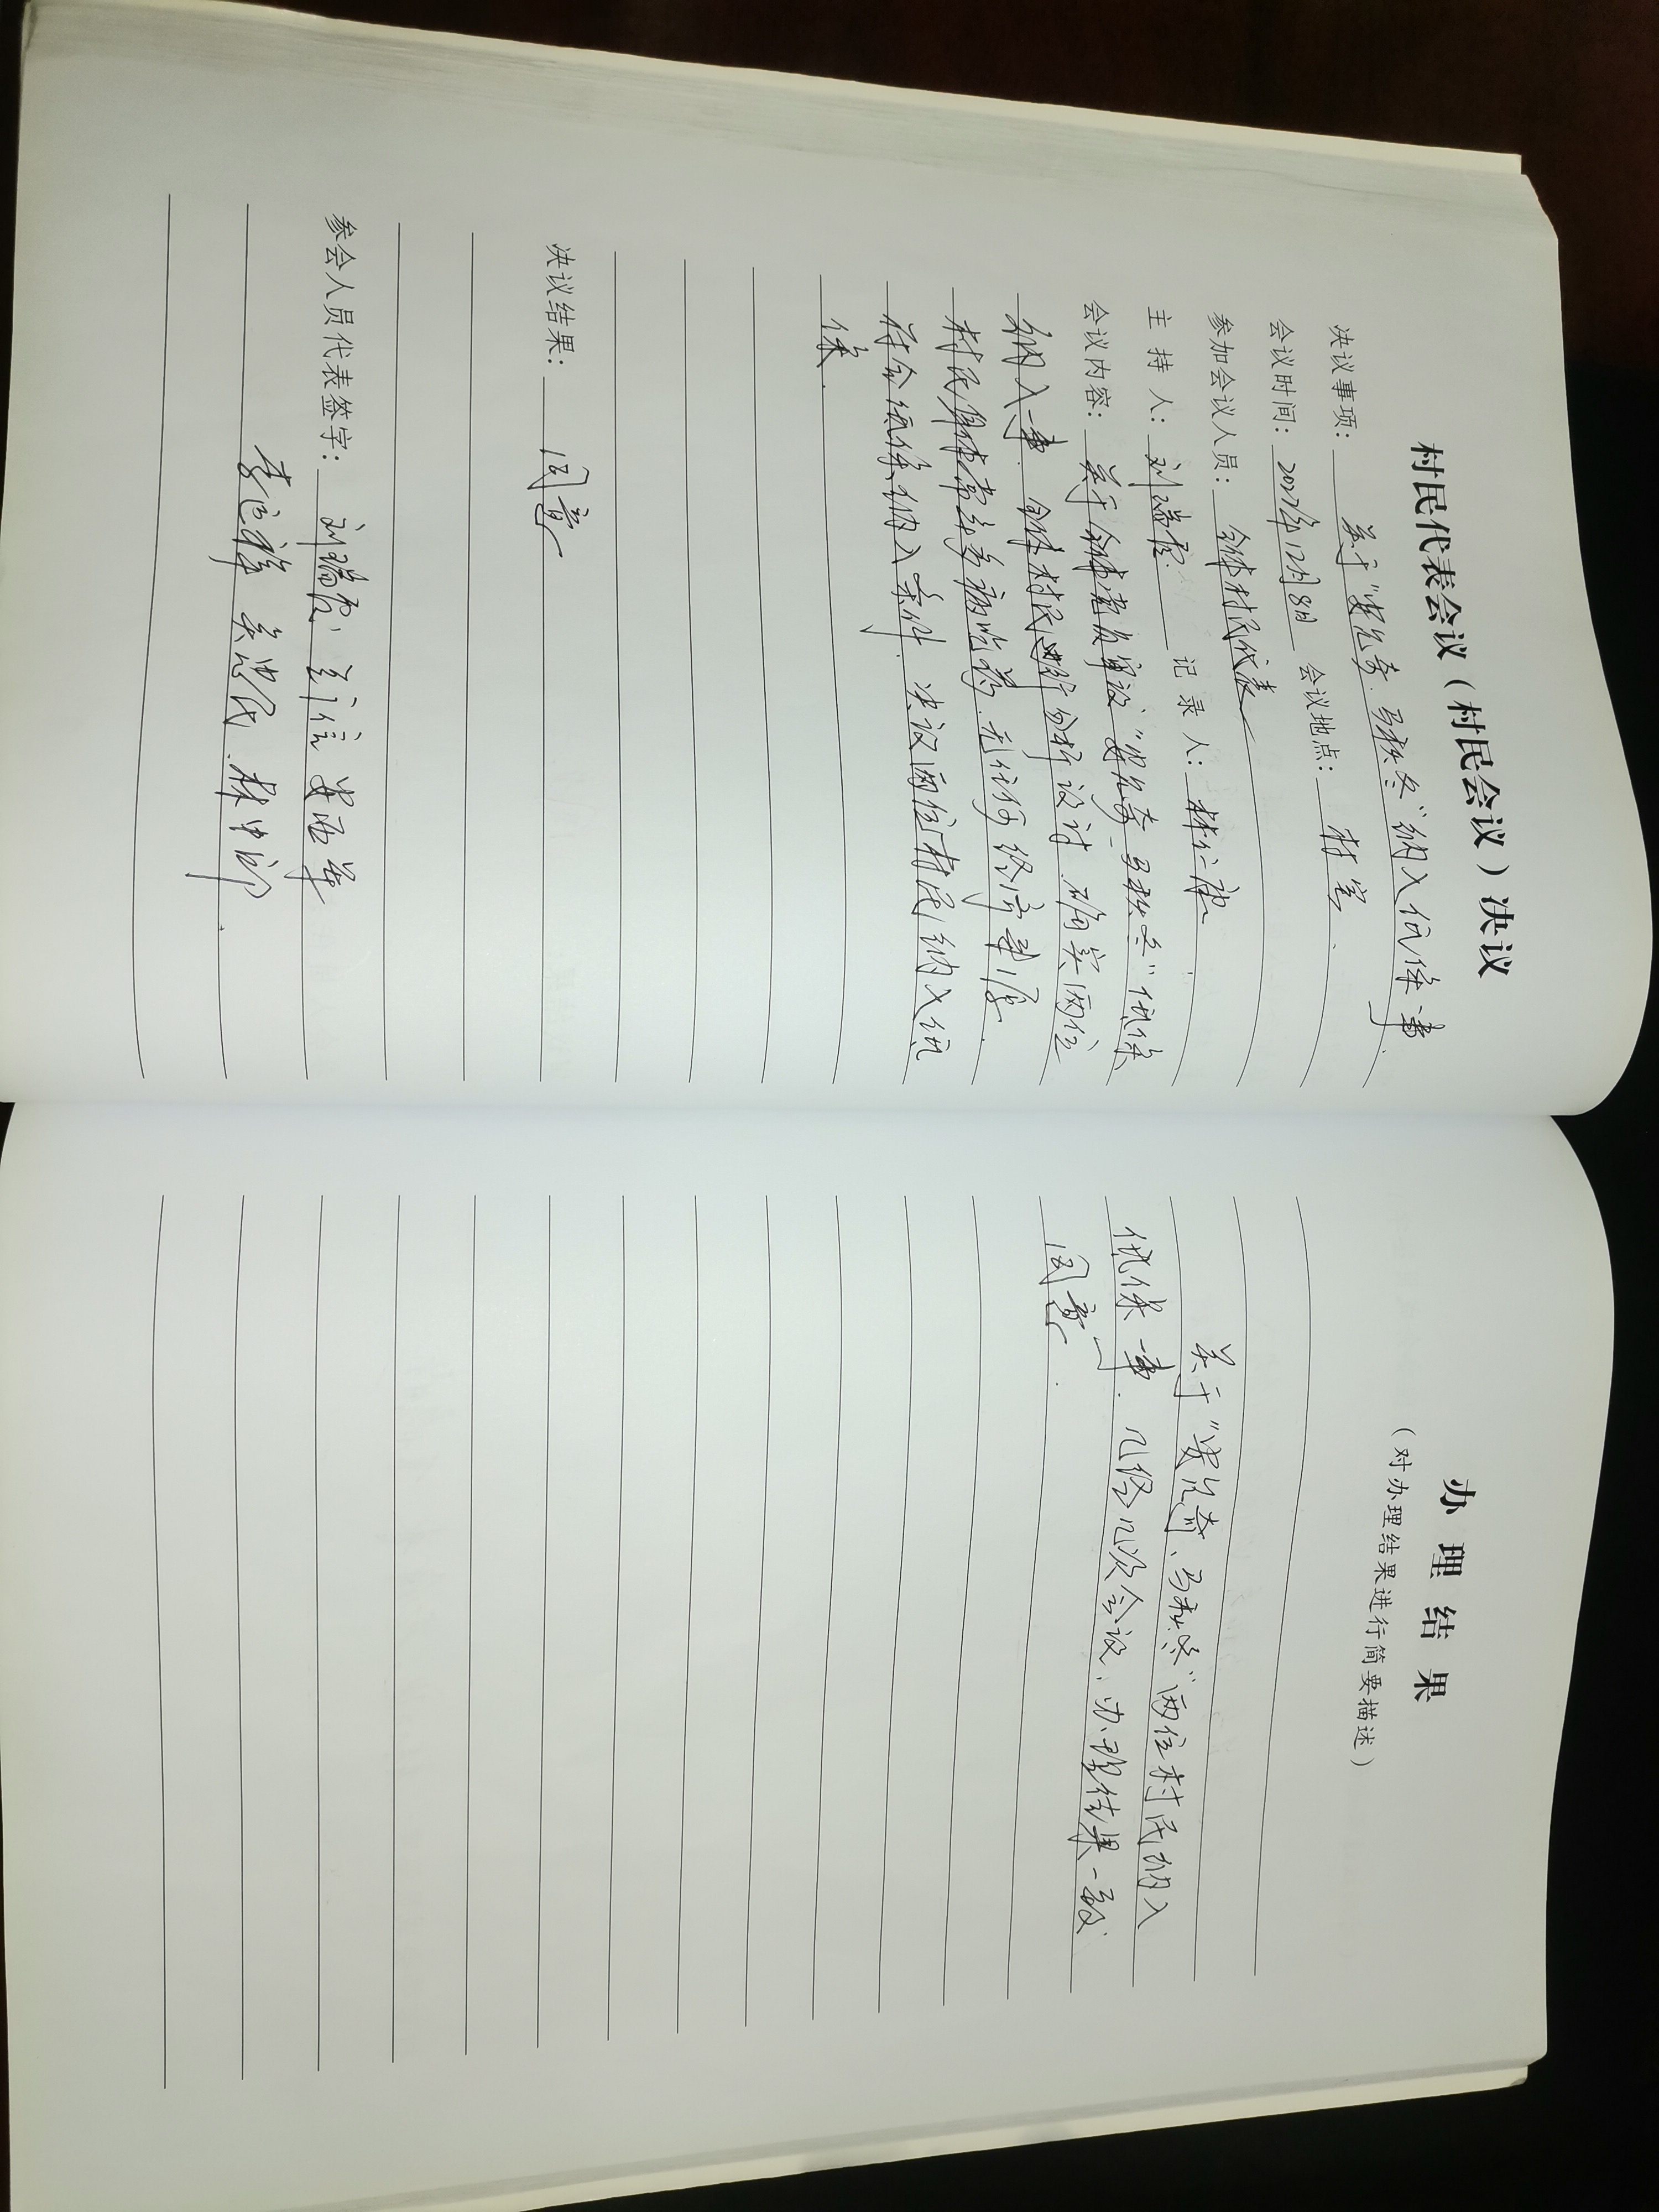 村民代表会议（村民会议）决议
决议事项： 关于“安允奇、马秋冬”纳入低保一事.
会议时间： 2022年12月8日 会议地点： 村室.
参加会议人员： 全体村民代表
主 持 人： 刘瑞霞. 记 录 人： 林仁康.
会议内容： 关于全体党员审议“安允奇、马秋冬”低保
纳入一事. 全体村民进行分析议讨.确实两位
村民身体常年多病吃药.无任何经济来源.
符合低保纳入条件.决议两位村民纳入低
保.
决议结果： 同意
参会人员代表签字： 刘瑞霞. 信 安西军
李运祥 吴忠民.林中印.
办理结果
（对办理结果进行简要描述）
关于“安允奇、马秋冬”两位村民纳入
低保一事.几经几次会议、办理结果一致
同意.